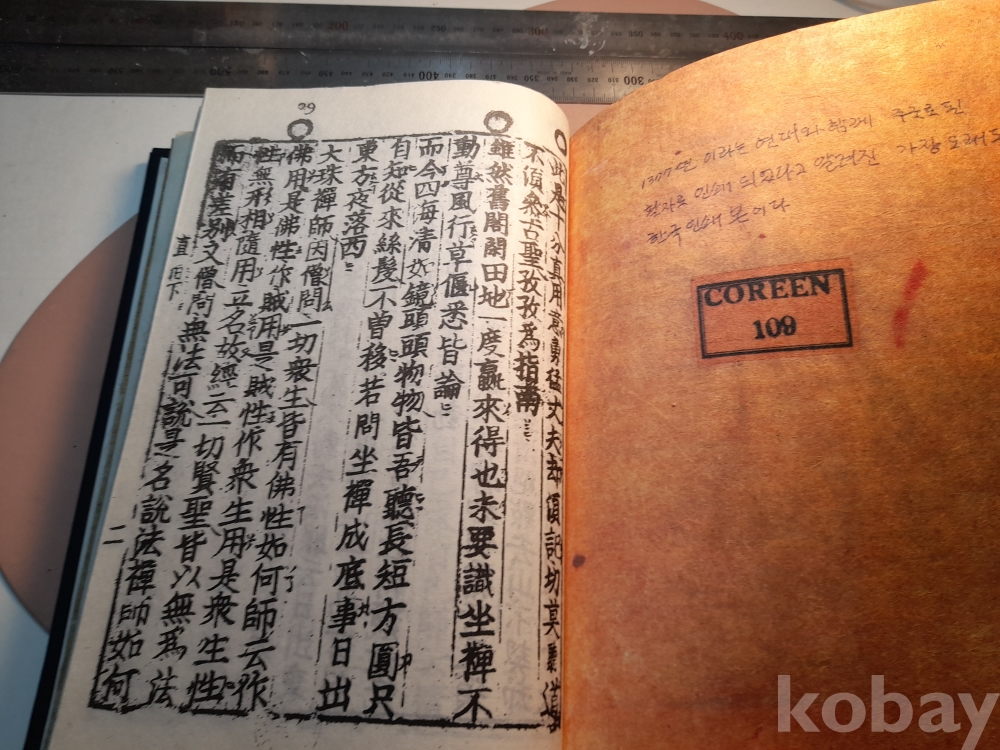 29
此是十分真用意勇猛丈夫却須記切莫聽道
不須參古聖孜孜爲指南
雖然舊閣閑田地一度贏來得也未要識坐禪不
動尊風行草偃悉皆論
而今四海清如鏡頭頭物物皆吾聽長短方圓只
自知從來絲髮不曾移若問坐禪成底事日出
東方夜落西
大珠禪師因僧問一切衆生皆有佛性如何師云作
佛用是佛性作賊用是賊性作衆生用是衆生性
性無形相隨用立名故經云一切賢聖皆以無爲法
而有差別又僧問無法可說是名說法禪師如何
直
下
二
1377년 이라는 연대와 함께
활자로 인쇄 되였다고 알려진 가장 오래된
한국 인쇄 본이다
COREEN
109
kobay